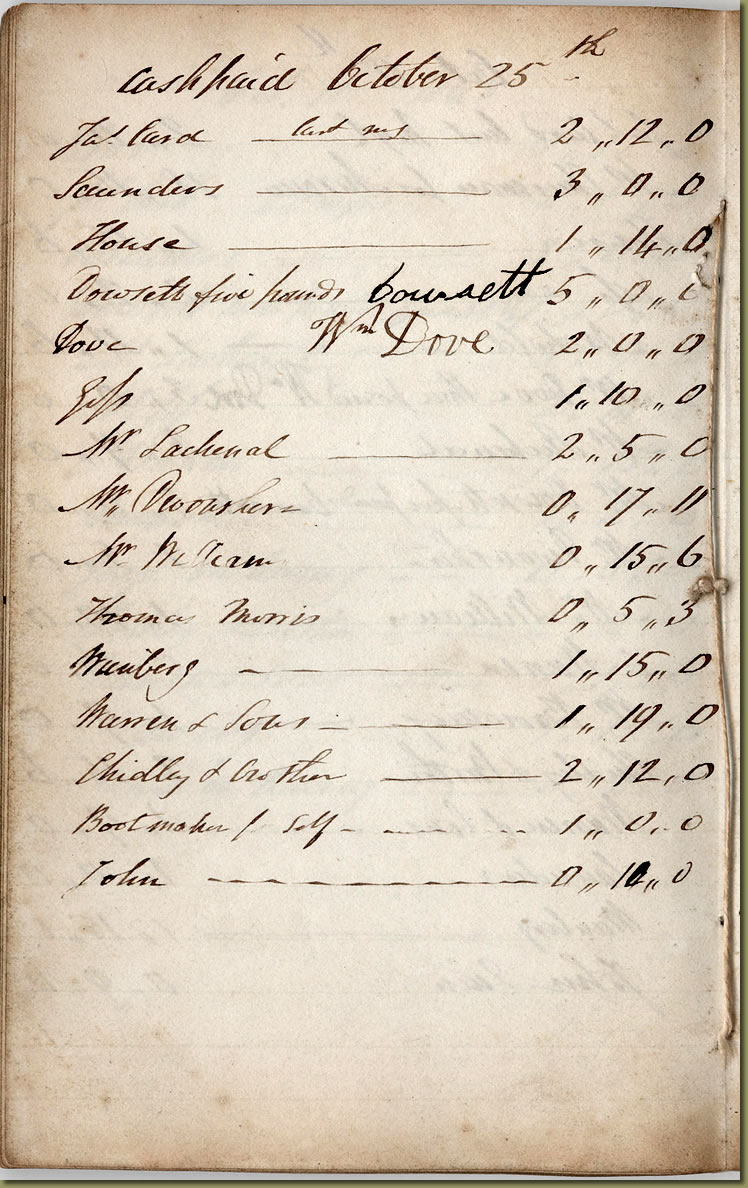 cash paid October 25th
Jas Card last ms 2 „ 12 „ 0
Saunders 3 „ 0 „ 0
House 1 „ 14 „ 0
Dowsett five pounds Dowsett 5 „ 0 „ 0
Dove Wm Dove 2 „ 0 „ 0
1 „ 10 „ 0
Mr Lachenal 2 „ 5 „ 0
Mr Devonsher 0 „ 17 „ 11
Mr 0 „ 15 „ 6
Thomas Morris 0 „ 5 „ 3
1 „ 15 „ 0
Warren & Sons 1 „ 19 „ 0
Chidley & Crother 2 „ 12 „ 0
Bootmaker / Self 1 „ 0 „ 0
John 0 „ 10 „ 0